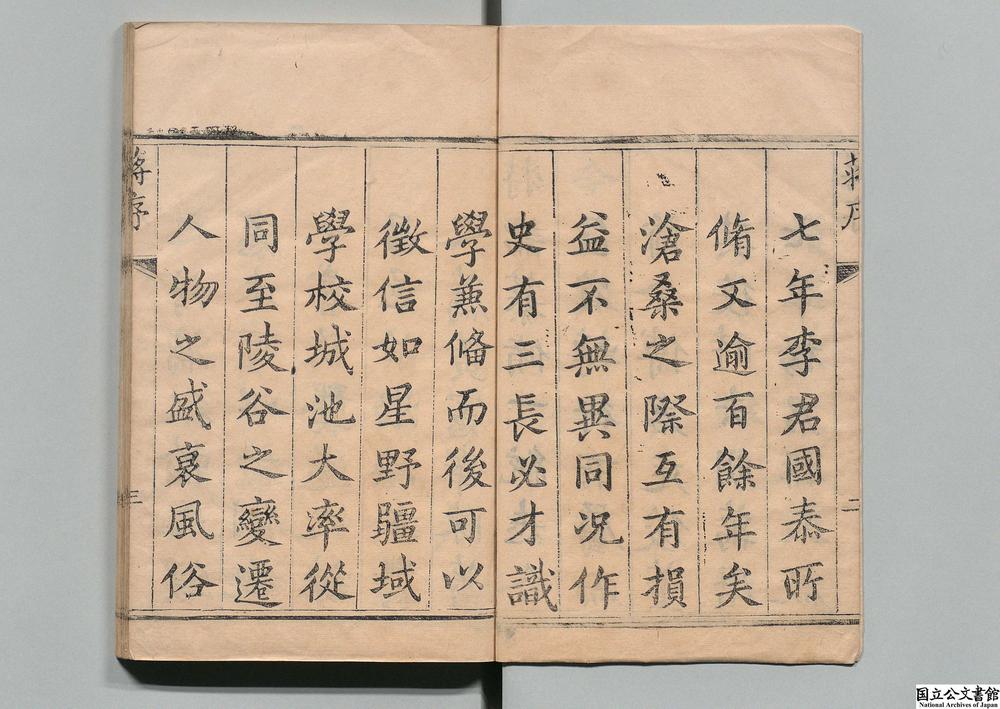 蔣序
二
七年李君國泰所
脩又逾百餘年矣
滄桑之際互有損
益不無異同況作
史有三長必才識
學蒹俻而後可以
徵信如星野疆域
學校城池大率從
同至陵谷之變遷
人物之盛衰風俗
蔣序
三
国立公文書館
National Archives of Japan